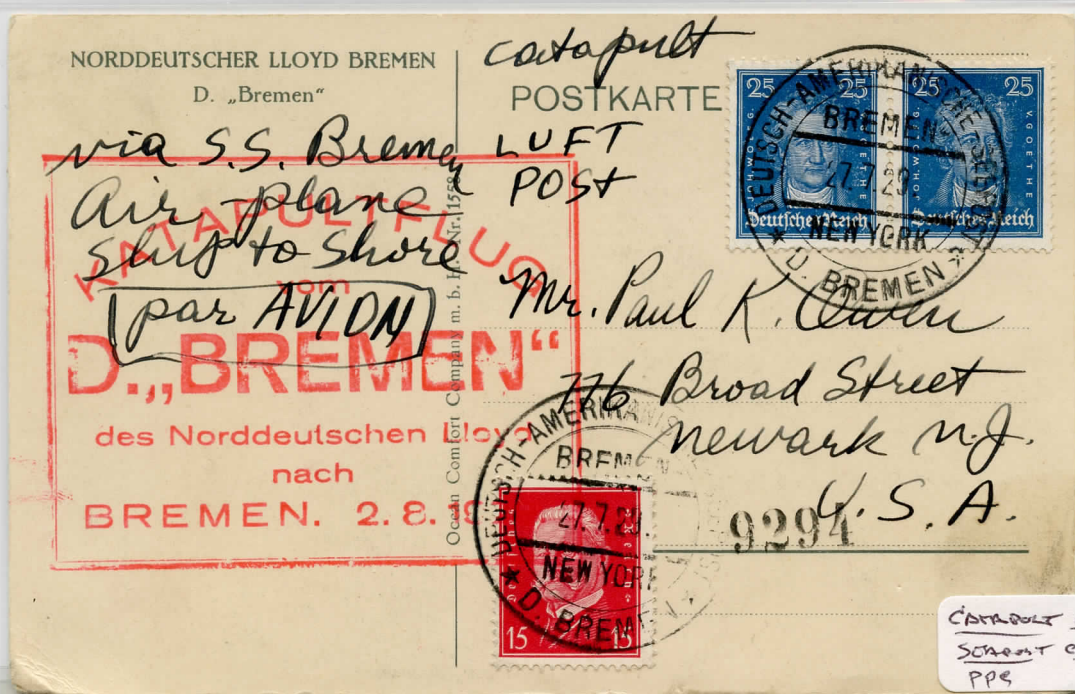 NORDDEUTSCHER LLOYD BREMEN
D. „Bremen“
catapult
POSTKARTE
LUFT
POST
via S.S. Bremen
Air-plane
Ship to Shore
par AVION
KATAPULTFLUG
vom
D. „BREMEN“
des Norddeutschen Lloyd
nach
BREMEN. 2.8.19
Ocean Comfort Company m. b. H. Nr. 1558
25 25
Deutsches Reich
25 25
Deutsches Reich
DEUTSCH-AMERIKANISCHE SEEPOST
BREMEN
27.7.29
NEW YORK
* D. BREMEN *
Mr. Paul K. Owen
776 Broad Street
Newark N.J.
U.S.A.
9294
DEUTSCH-AMERIKANIS
BREMEN
27.7.29
NEW YORK
* D. BREMEN *
15 15
CATAPULT
SEAPOST
PPC